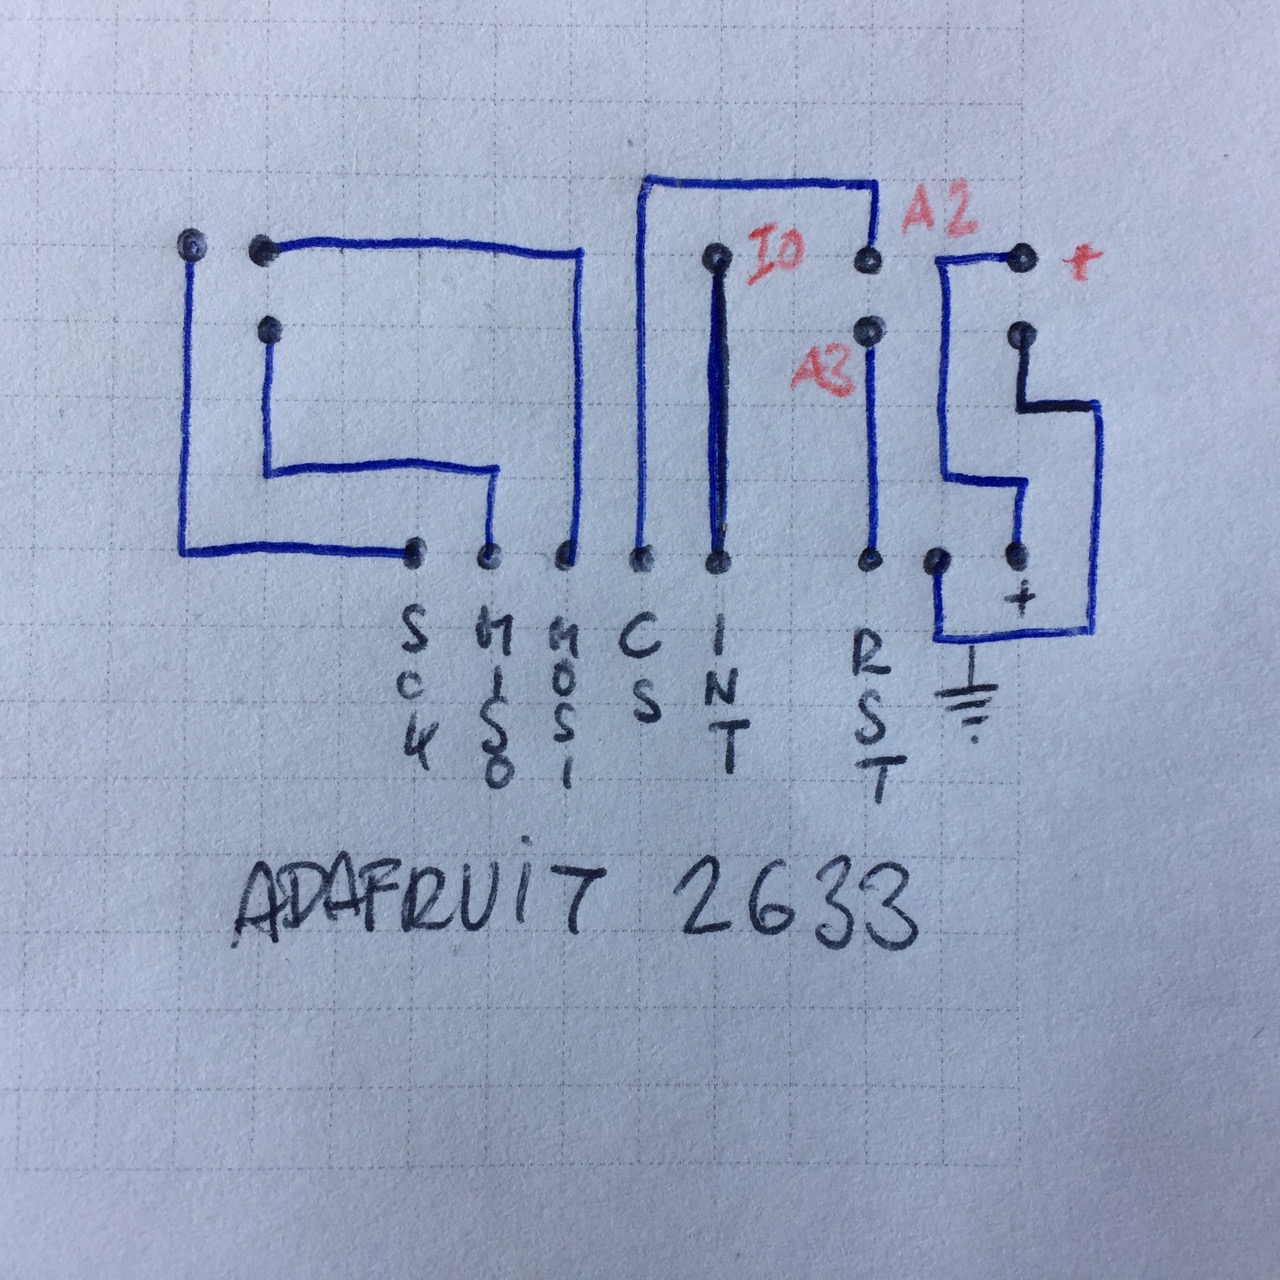 A2
IO
+
A3
+
SCK
MISO
MOSI
CS
INT
RST
ADAFRUIT 2633